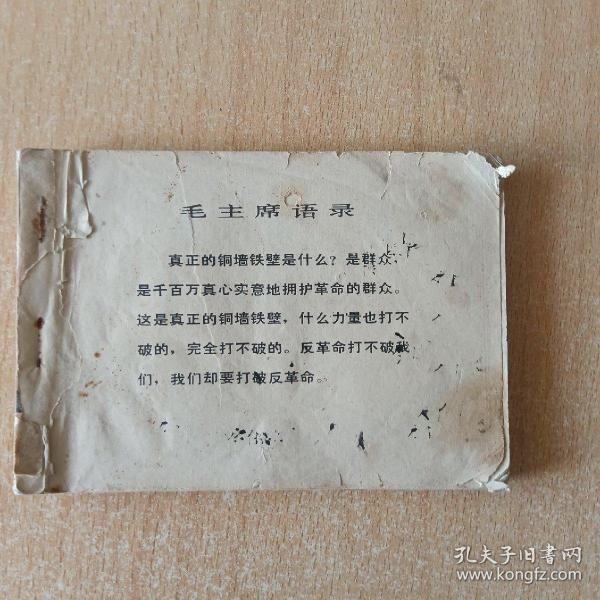 毛主席语录
真正的铜墙铁壁是什么？是群众，
是千百万真心实意地拥护革命的群众。
这是真正的铜墙铁壁，什么力量也打不
破的，完全打不破的。反革命打不破我
们，我们却要打破反革命。
孔夫子旧书网
www.kongfz.com